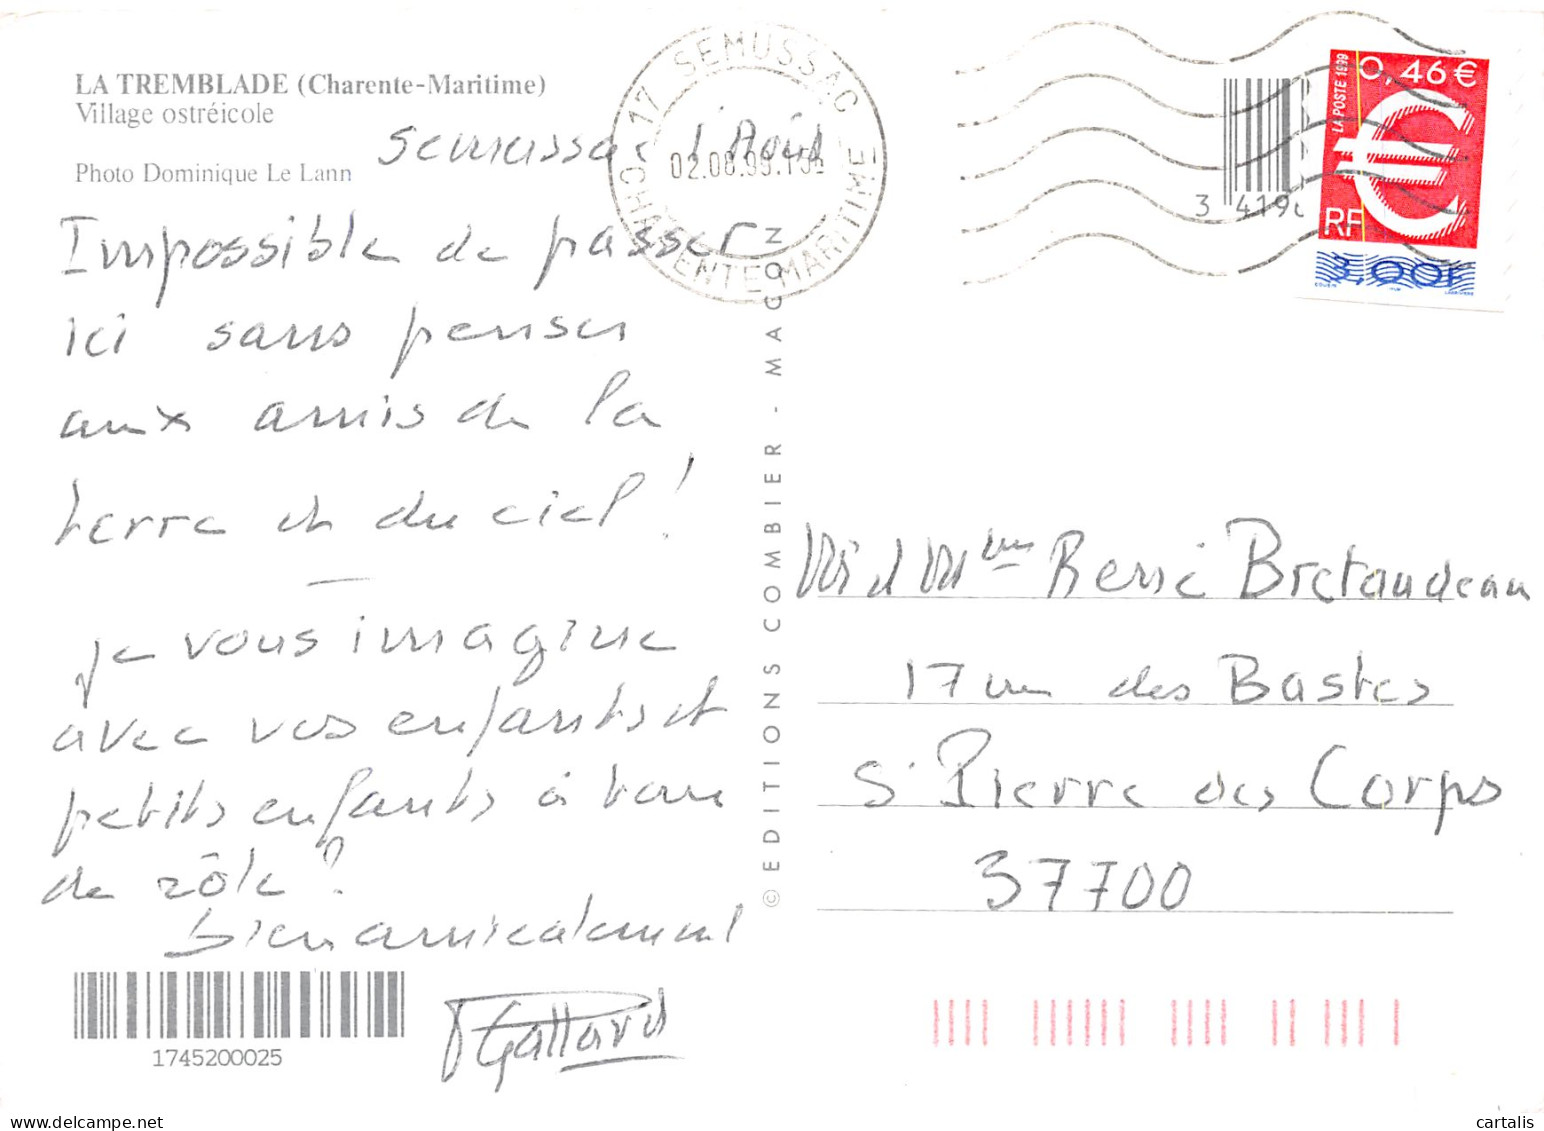 LA TREMBLADE (Charente-Maritime)
Village ostréicole
Photo Dominique Le Lann
Semussac 1 Août
Impossible de passer
ici sans penser
aux amis de la
terre et du ciel !
—
je vous imagine
avec vos enfants et
petits enfants à tour
de rôle ?
bien amicalement
Gallard
1745200025
© EDITIONS COMBIER - MACON
17 SEMUSSAC
CHARENTE MARITIME
02.08.99
3 419
LA POSTE 1999
0,46 €
RF
3,00F
Mr et Mme René Bretaudeau
17 rue des Bastes
St Pierre des Corps
37700
cartalis